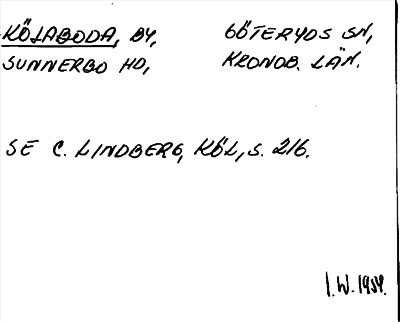 KÖLABODA, BY, GÖTERYDS SN,
SUNNERBO HD, KRONOB. LÄN.
SE C. LINDBERG, KÖL, S. 216.
I.W. 1954.